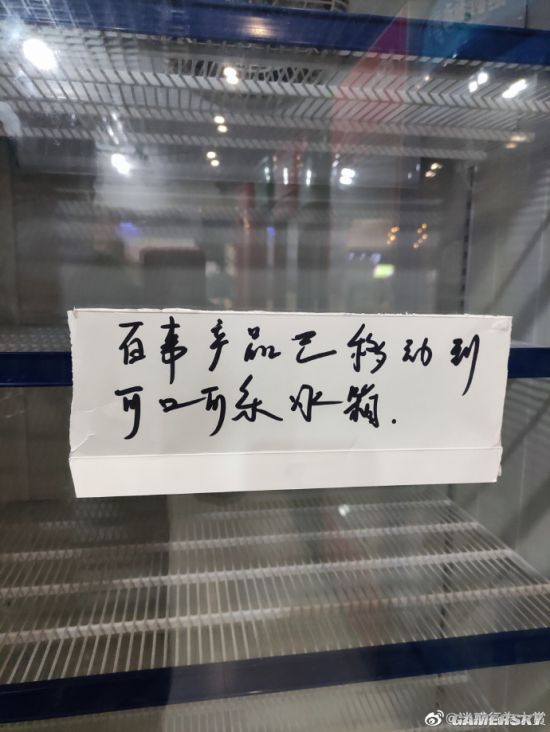 百事产品已移动到
可口可乐冰箱.
GAMERSKY